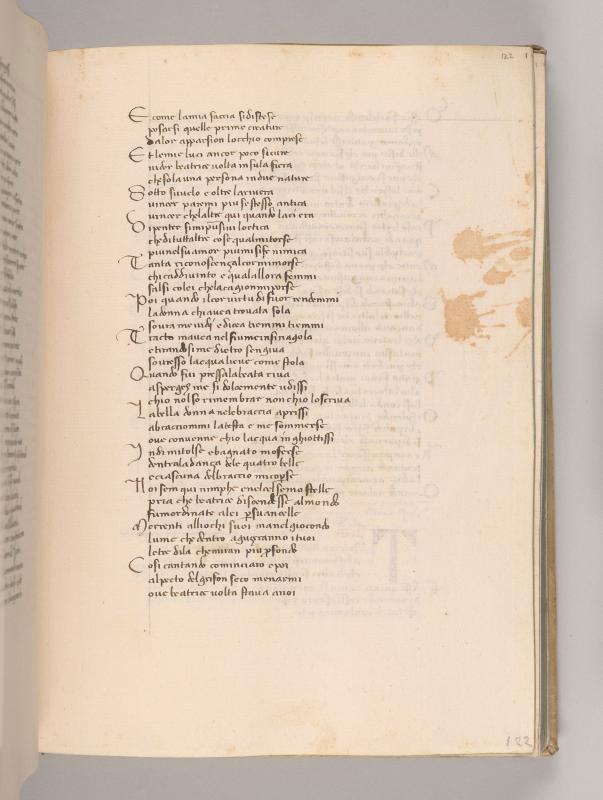 122
E come lamia faccia sidistese
posarsi quelle prime creature
dalor apparsion locchio comprese
Et lemie luci ancor poco sicure
vider beatrice volta insula fiera
che sola una persona in due nature
Sotto suvelo e oltre lariviera
vincer pariemi piu se stesso antica
vincer chelaltre qui quando lacera
Di penter si mi puse ivi lortica
che di tuttaltre cose qual mi torse
piu nel su amor piu mi si fe nimica
Tanta riconoscenza l cor mi morse
chi caddi vinto e qual allora femmi
salsi colei che la cagion mi porse
Poi quando il cor virtu di fuor rendemmi
la donna chi avea trovata sola
sovra me vidi e dicea tiemmi tiemmi
Tracto mavea nel fiume infin a gola
e tirandosi me dietro sen giva
sovresso lacqua lieve come stola
Quando fui pressalabeata riva
asperges me si dolcemente udissi
chio nol so rimembrar non chio lo scriva
La bella donna nele braccia aprissi
abracciommi la testa e me sommerse
ove convenne chio lacqua inghiottissi
Indi mi tolse e bagnato moferse
dentrala danza dele quatro belle
e ciascuna del braccio mi coperse
Noi sem qui nimphe e nel ciel semo stelle
pria che beatrice discendesse al mondo
fumo ordinate a lei per sue ancelle
Merrenti alliochi suoi ma nel giocondo
lume che dentro aguzeranno i tuoi
le tre di la che miran piu profondo
Cosi cantando cominciaro e poi
al pecto del grifon seco menarmi
ove beatrice volta stava a noi
122